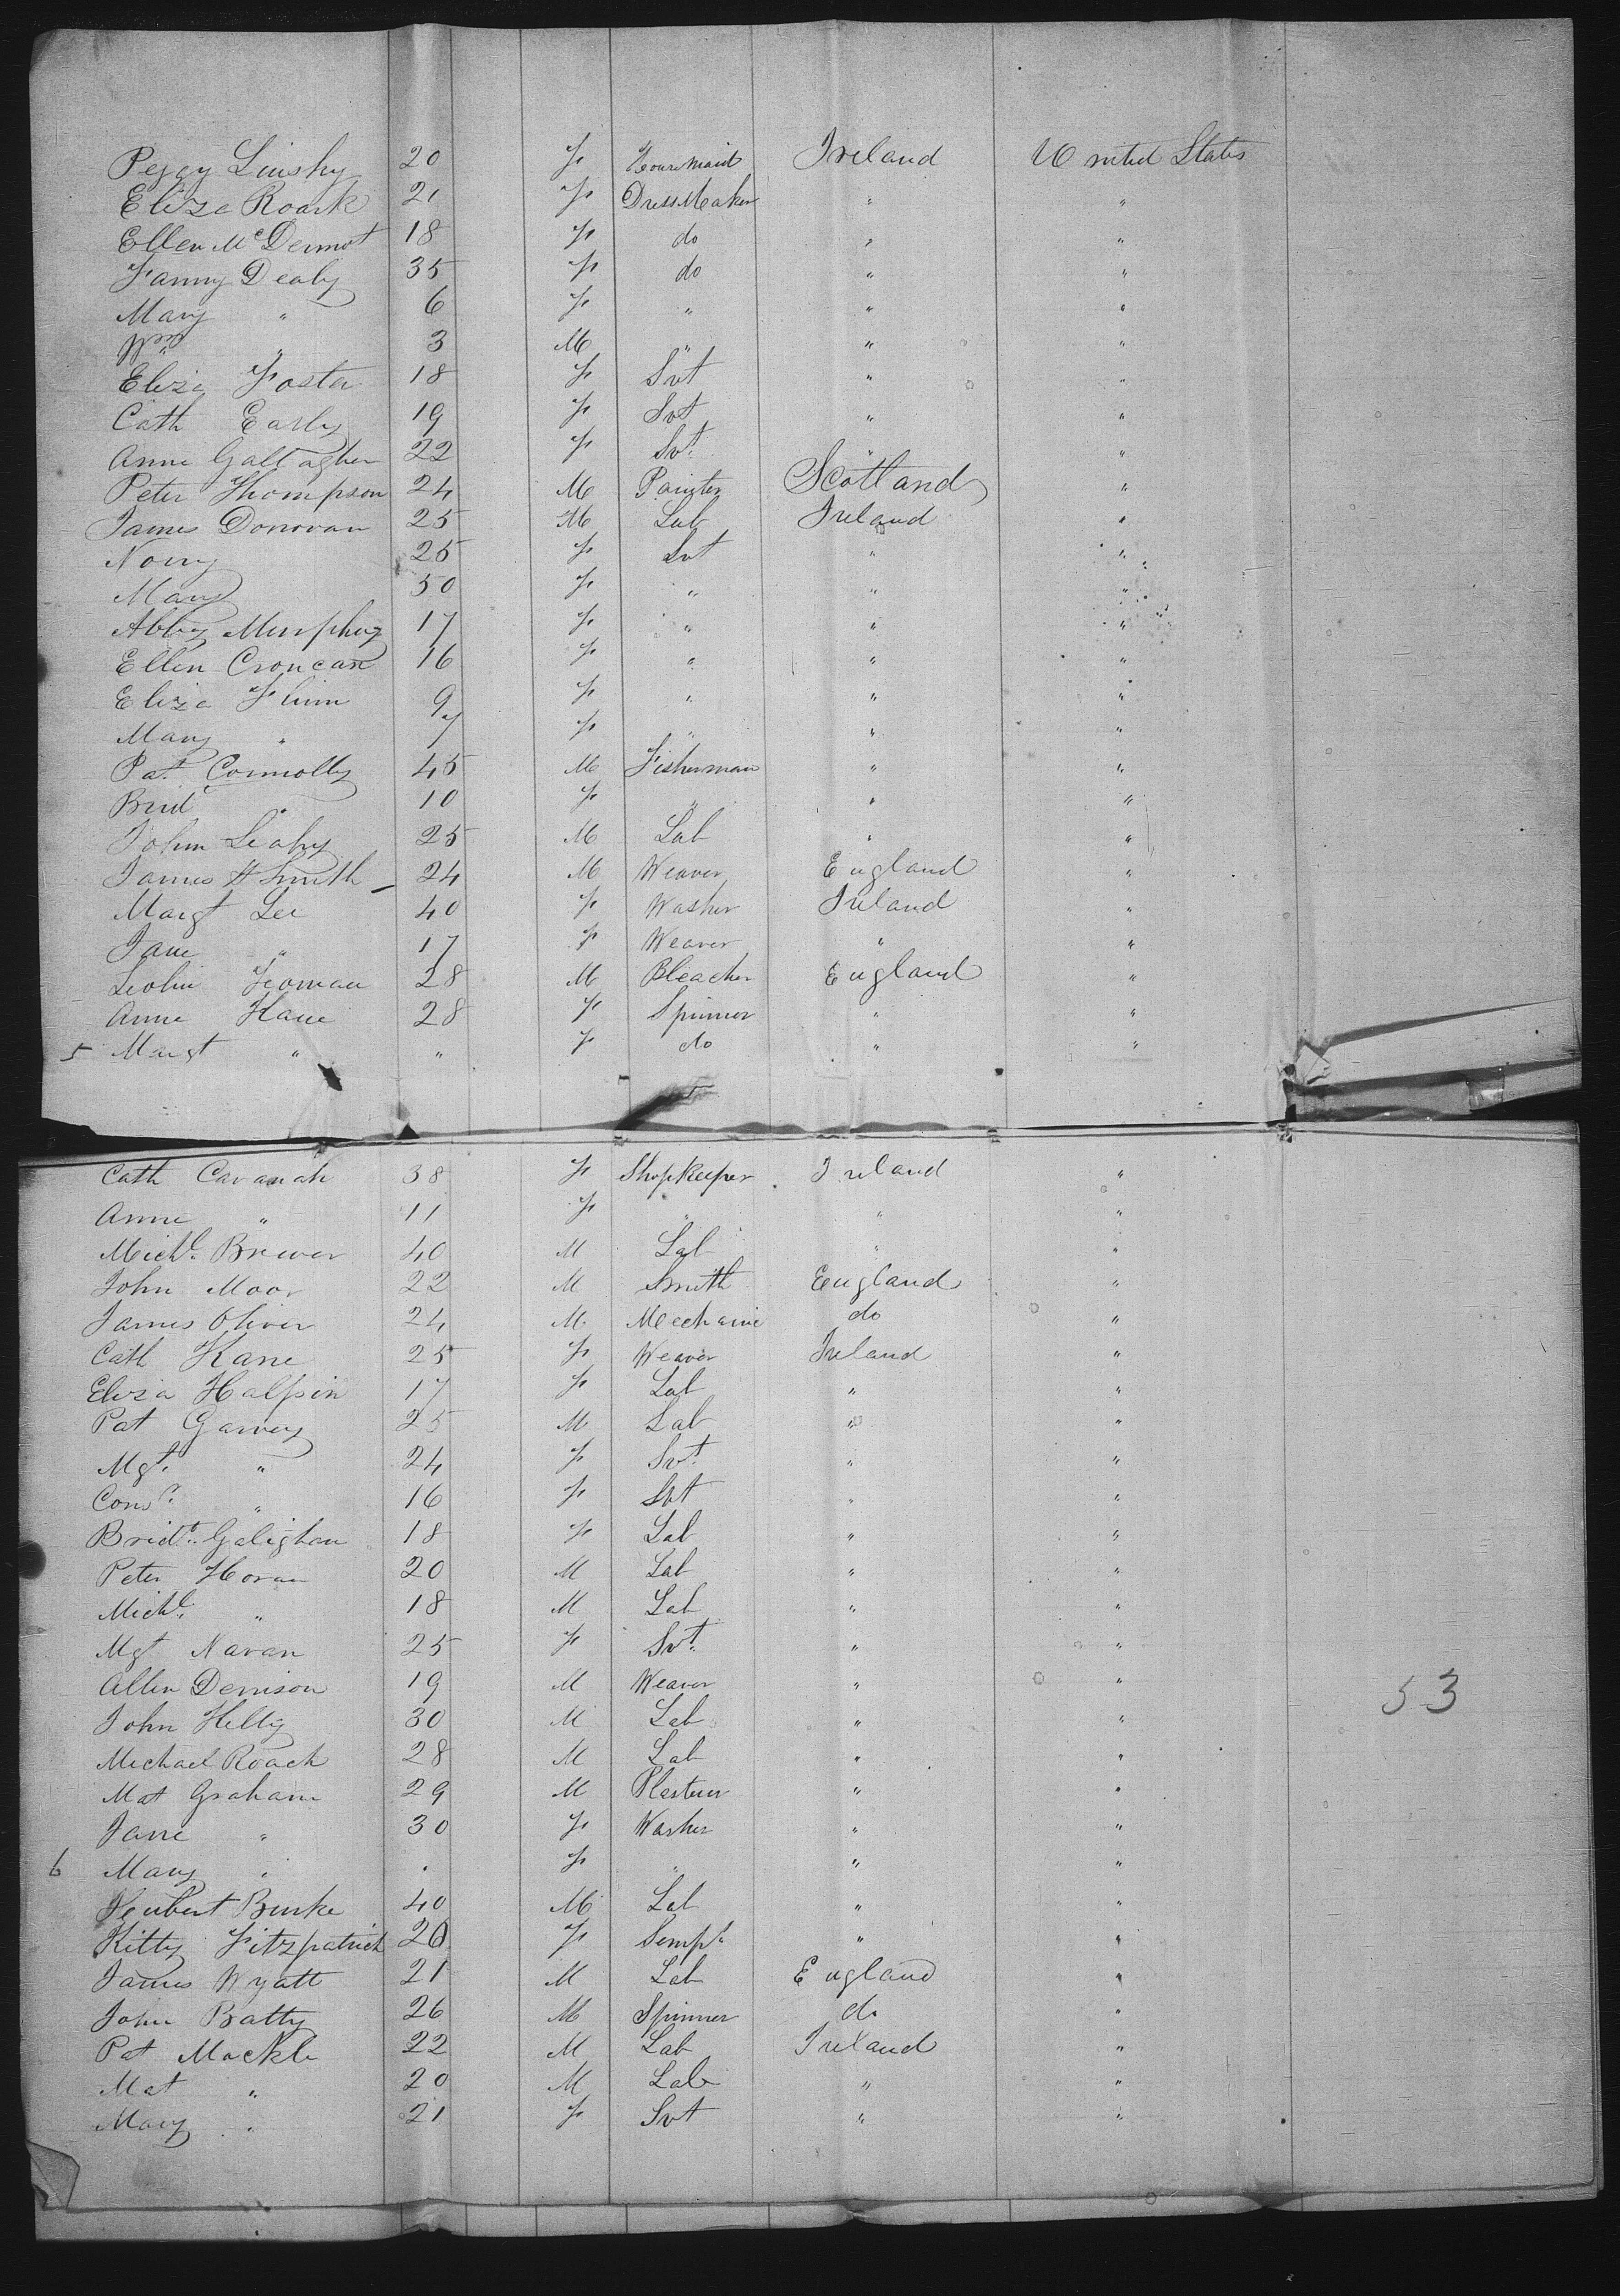 Peggy Linshy 20 F Housemaid Ireland United States
Eliza Roark 21 F DressMaker " "
Ellen McDermot 18 F do " "
Fanny Dealy 35 F do " "
Mary " 6 F " " "
Wm " 3 M " " "
Eliza Foster 18 F Svt " "
Cath Early 19 F Svt " "
Anne Gallagher 22 F Svt " "
Peter Thompson 24 M Painter Scotland "
James Donovan 25 M Lab Ireland "
Nory 25 F Svt " "
Mary 50 F " " "
Abby Murphey 17 F " " "
Ellen Croncan 16 F " " "
Eliza Flinn 9 F " " "
Mary " 7 F " " "
Pat Connolly 45 M Fisherman " "
Brid " 10 F " " "
John Leahy 25 M Lab " "
James H Smith 24 M Weaver England "
Margt Lee 40 F Washer Ireland "
Jane " 17 F Weaver " "
Yeoman 28 M Bleacher England "
Anne Kane 28 F Spinner " "
5 Margt " " F do " "
Cath Cavanah 38 F Shopkeeper Ireland "
Anne " 11 F " " "
Michl. Brewer 40 M Lab " "
John Moor 22 M Smith England "
James Oliver 24 M Mechanic do "
Cath Kane 25 F Weaver Ireland "
Eliza Halpin 17 F Lab " "
Pat Garvey 25 M Lab " "
Mgt. " 24 F Svt. " "
" 16 F Svt " "
Bridt. Galighan 18 F Lab " "
Peter Horan 20 M Lab " "
Michl. " 18 M Lab " "
Mgt Navan 25 F Svt. " "
Allen Denison 19 M Weaver " "
53
John 30 M Lab " "
Michael Roach 28 M Lab " "
Mat Graham 29 M Plasterer " "
Jane " 30 F Washer " "
6 Mary " " F " " "
Burke 40 M Lab " "
Kitty Fitzpatrick 20 F Semps " "
James Wyatt 21 M Lab England "
John Batty 26 M Spinner do "
Pat Mackle 22 M Lab Ireland "
Mat " 20 M Lab " "
Mary " 21 F Svt " "